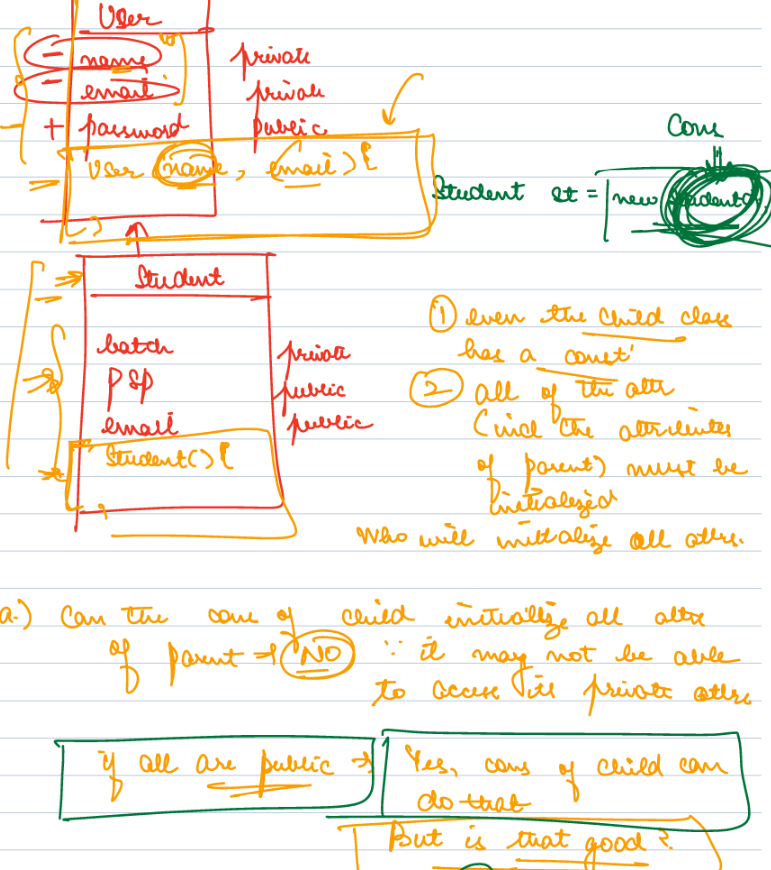 User
- name private
- email private
+ password public
User (name, email) {
}
Cons
Student st = new Student()
Student
batch private
PSP public
email public
Student() {
}
① even the child class
has a const'
② all of the attr
(incl the attributes
of parent) must be
initialized
Who will initialize all attrs.
a.) Can the cons of child initialize all attr
of parent → NO ∵ it may not be able
to access its private attrs
if all are public →
Yes, cons of child can
do that
But is that good?